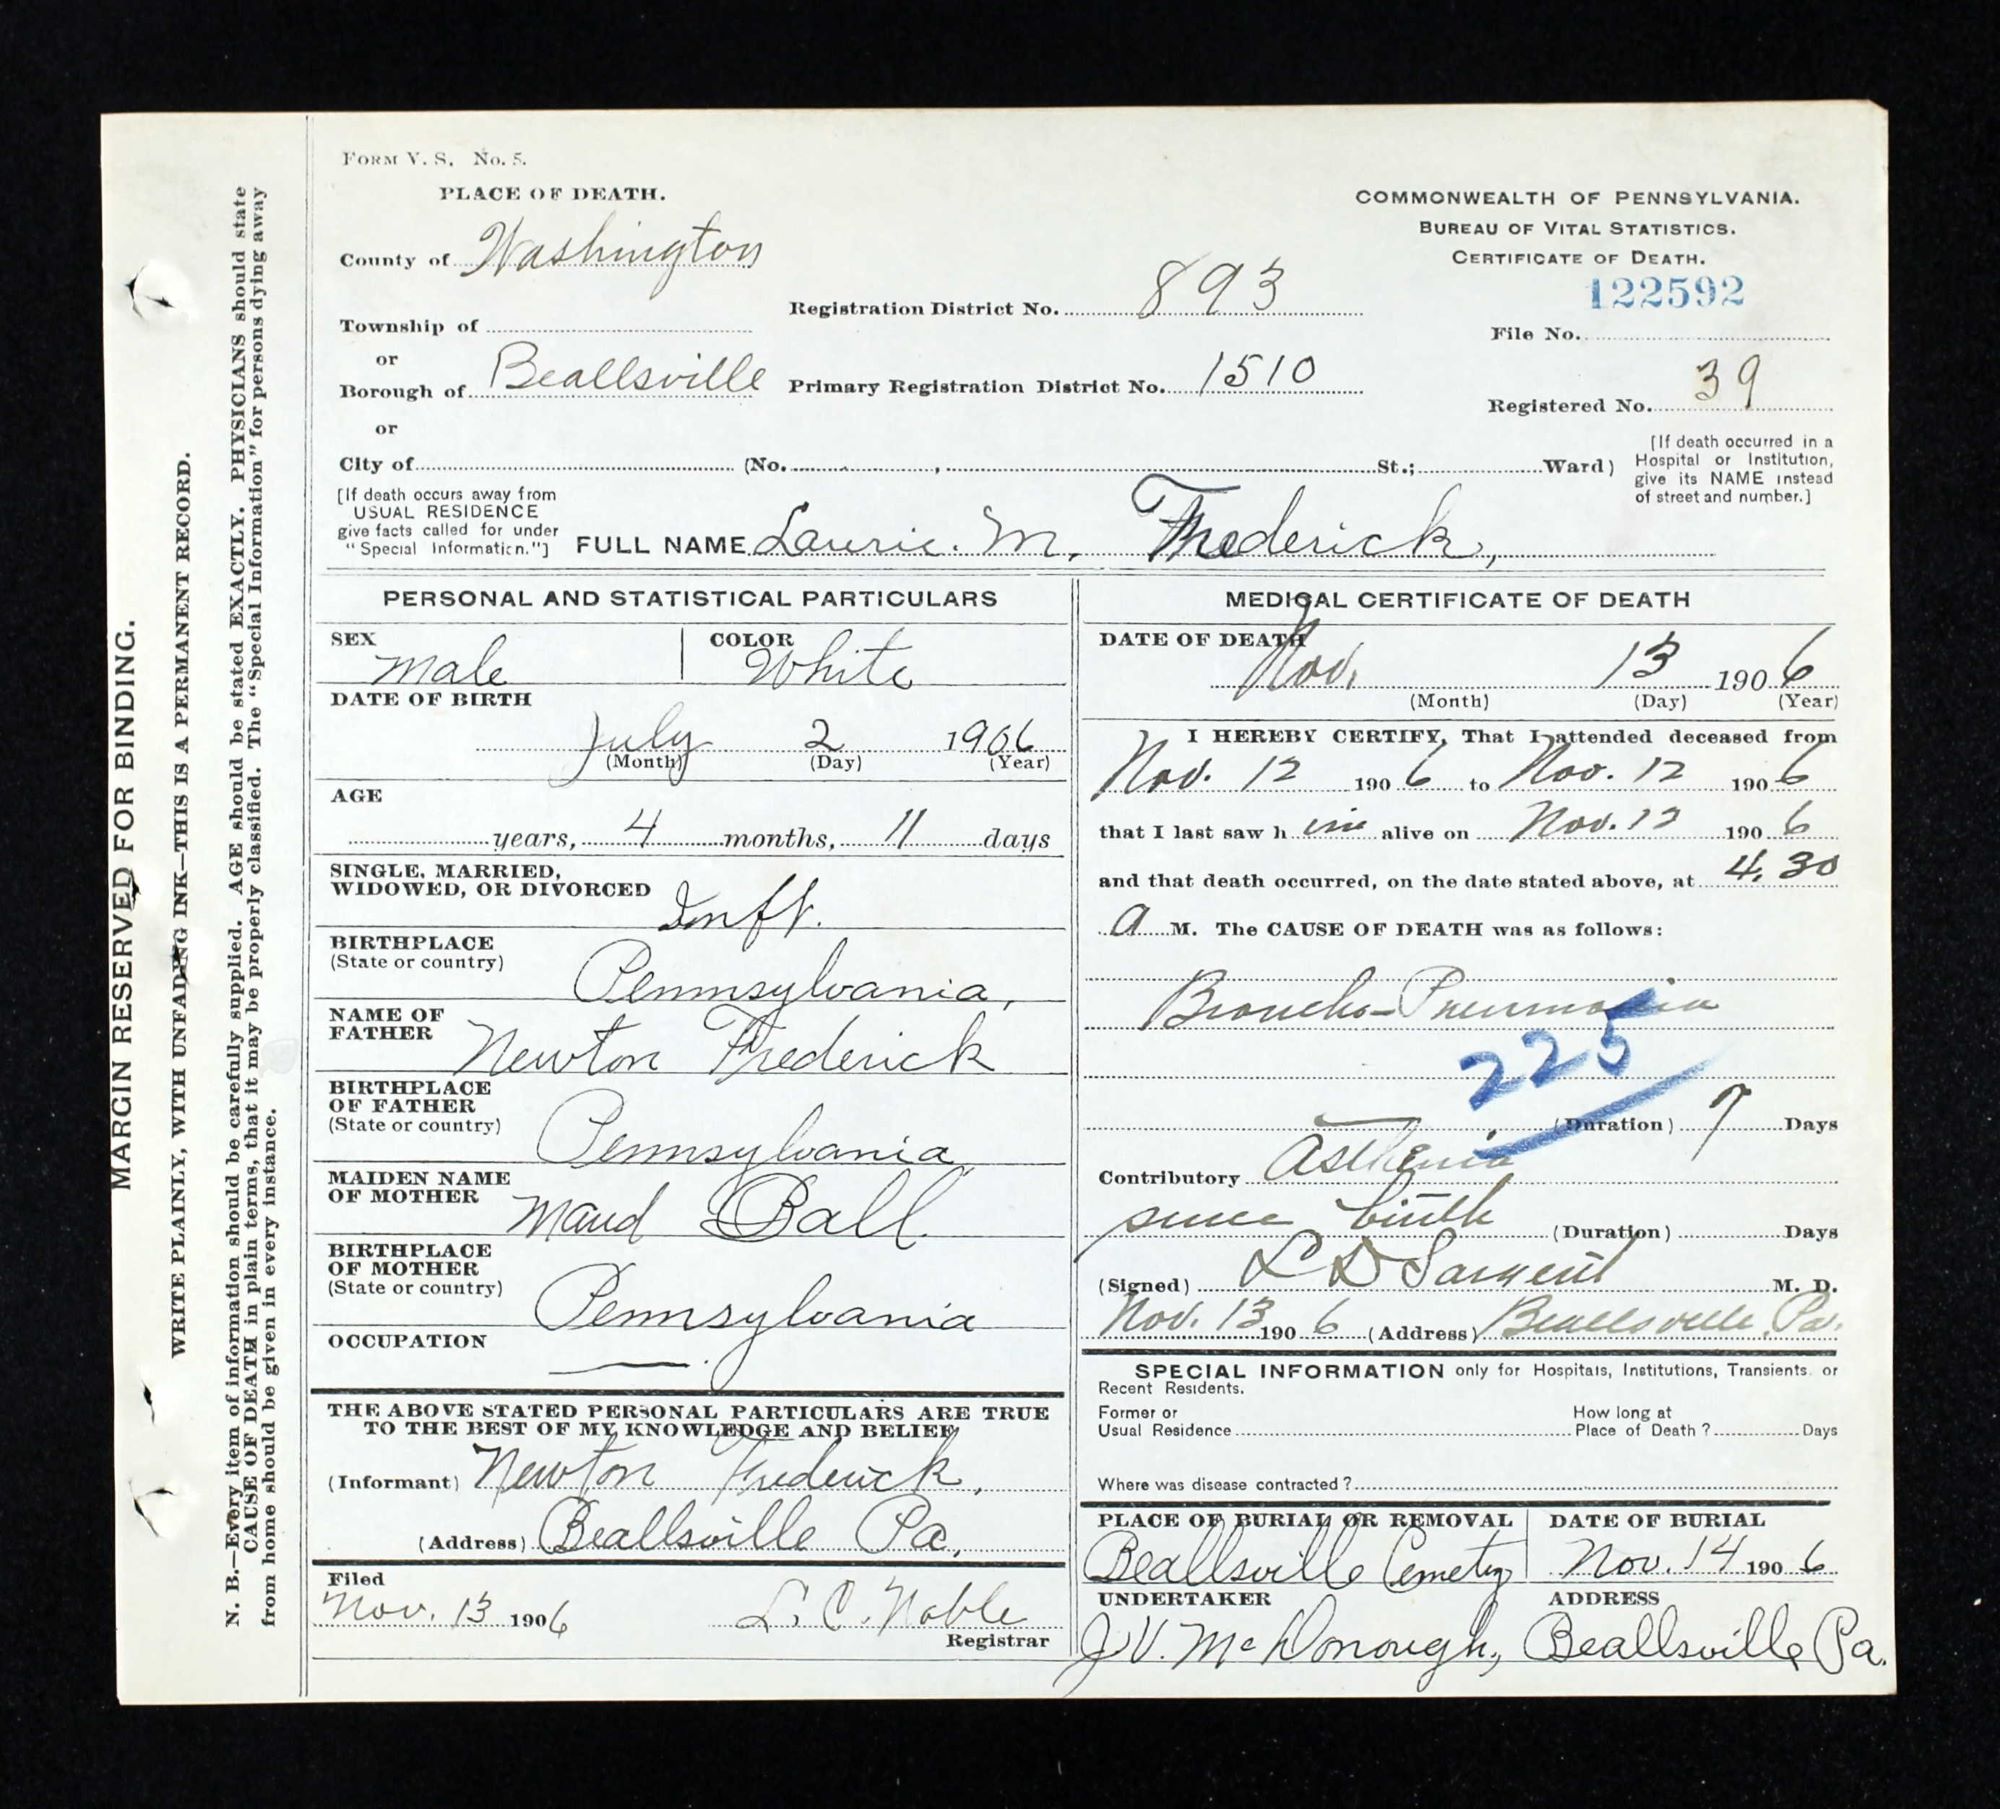 FORM V. S. No. 5.
PLACE OF DEATH.
County of Washington
Township of
or
Borough of Beallsville
or
City of (No. , St.; Ward)
Registration District No. 893
Primary Registration District No. 1510
COMMONWEALTH OF PENNSYLVANIA.
BUREAU OF VITAL STATISTICS.
CERTIFICATE OF DEATH.
122592
File No.
Registered No. 39
[If death occurred in a
Hospital or Institution,
give its NAME instead
of street and number.]
[If death occurs away from
USUAL RESIDENCE
give facts called for under
"Special Information."]
FULL NAME Laurie. M. Frederick,
PERSONAL AND STATISTICAL PARTICULARS
SEX Male
COLOR White
DATE OF BIRTH
July 2 1906
(Month) (Day) (Year)
AGE
years, 4 months, 11 days
SINGLE, MARRIED,
WIDOWED, OR DIVORCED
Inft.
BIRTHPLACE
(State or country)
Pennsylvania,
NAME OF
FATHER
Newton Frederick
BIRTHPLACE
OF FATHER
(State or country)
Pennsylvania
MAIDEN NAME
OF MOTHER
Maud Ball
BIRTHPLACE
OF MOTHER
(State or country)
Pennsylvania
OCCUPATION
THE ABOVE STATED PERSONAL PARTICULARS ARE TRUE
TO THE BEST OF MY KNOWLEDGE AND BELIEF
(Informant) Newton Frederick,
(Address) Beallsville Pa,
Filed
Nov. 13 1906 L. C. Noble
Registrar
MEDICAL CERTIFICATE OF DEATH
DATE OF DEATH
Nov. 13 1906
(Month) (Day) (Year)
I HEREBY CERTIFY, That I attended deceased from
Nov. 12 1906 to Nov. 12 1906
that I last saw him alive on Nov. 12 1906
and that death occurred, on the date stated above, at 4.30
a M. The CAUSE OF DEATH was as follows:
Broncho-Pneumonia
225
(Duration) 7 Days
Contributory Asthenia
since birth (Duration) Days
(Signed) L D Sargent M. D.
Nov. 13 1906 (Address) Beallsville, Pa.
SPECIAL INFORMATION only for Hospitals, Institutions, Transients. or
Recent Residents.
Former or
Usual Residence
How long at
Place of Death ? Days
Where was disease contracted ?
PLACE OF BURIAL OR REMOVAL
Beallsville Cemetery
DATE OF BURIAL
Nov. 14 1906
UNDERTAKER
J. V. McDonough,
ADDRESS
Beallsville Pa.
MARGIN RESERVED FOR BINDING.
WRITE PLAINLY, WITH UNFADING INK—THIS IS A PERMANENT RECORD.
N. B.—Every item of information should be carefully supplied. AGE should be stated EXACTLY. PHYSICIANS should state
CAUSE OF DEATH in plain terms, that it may be properly classified. The "Special Information" for persons dying away
from home should be given in every instance.